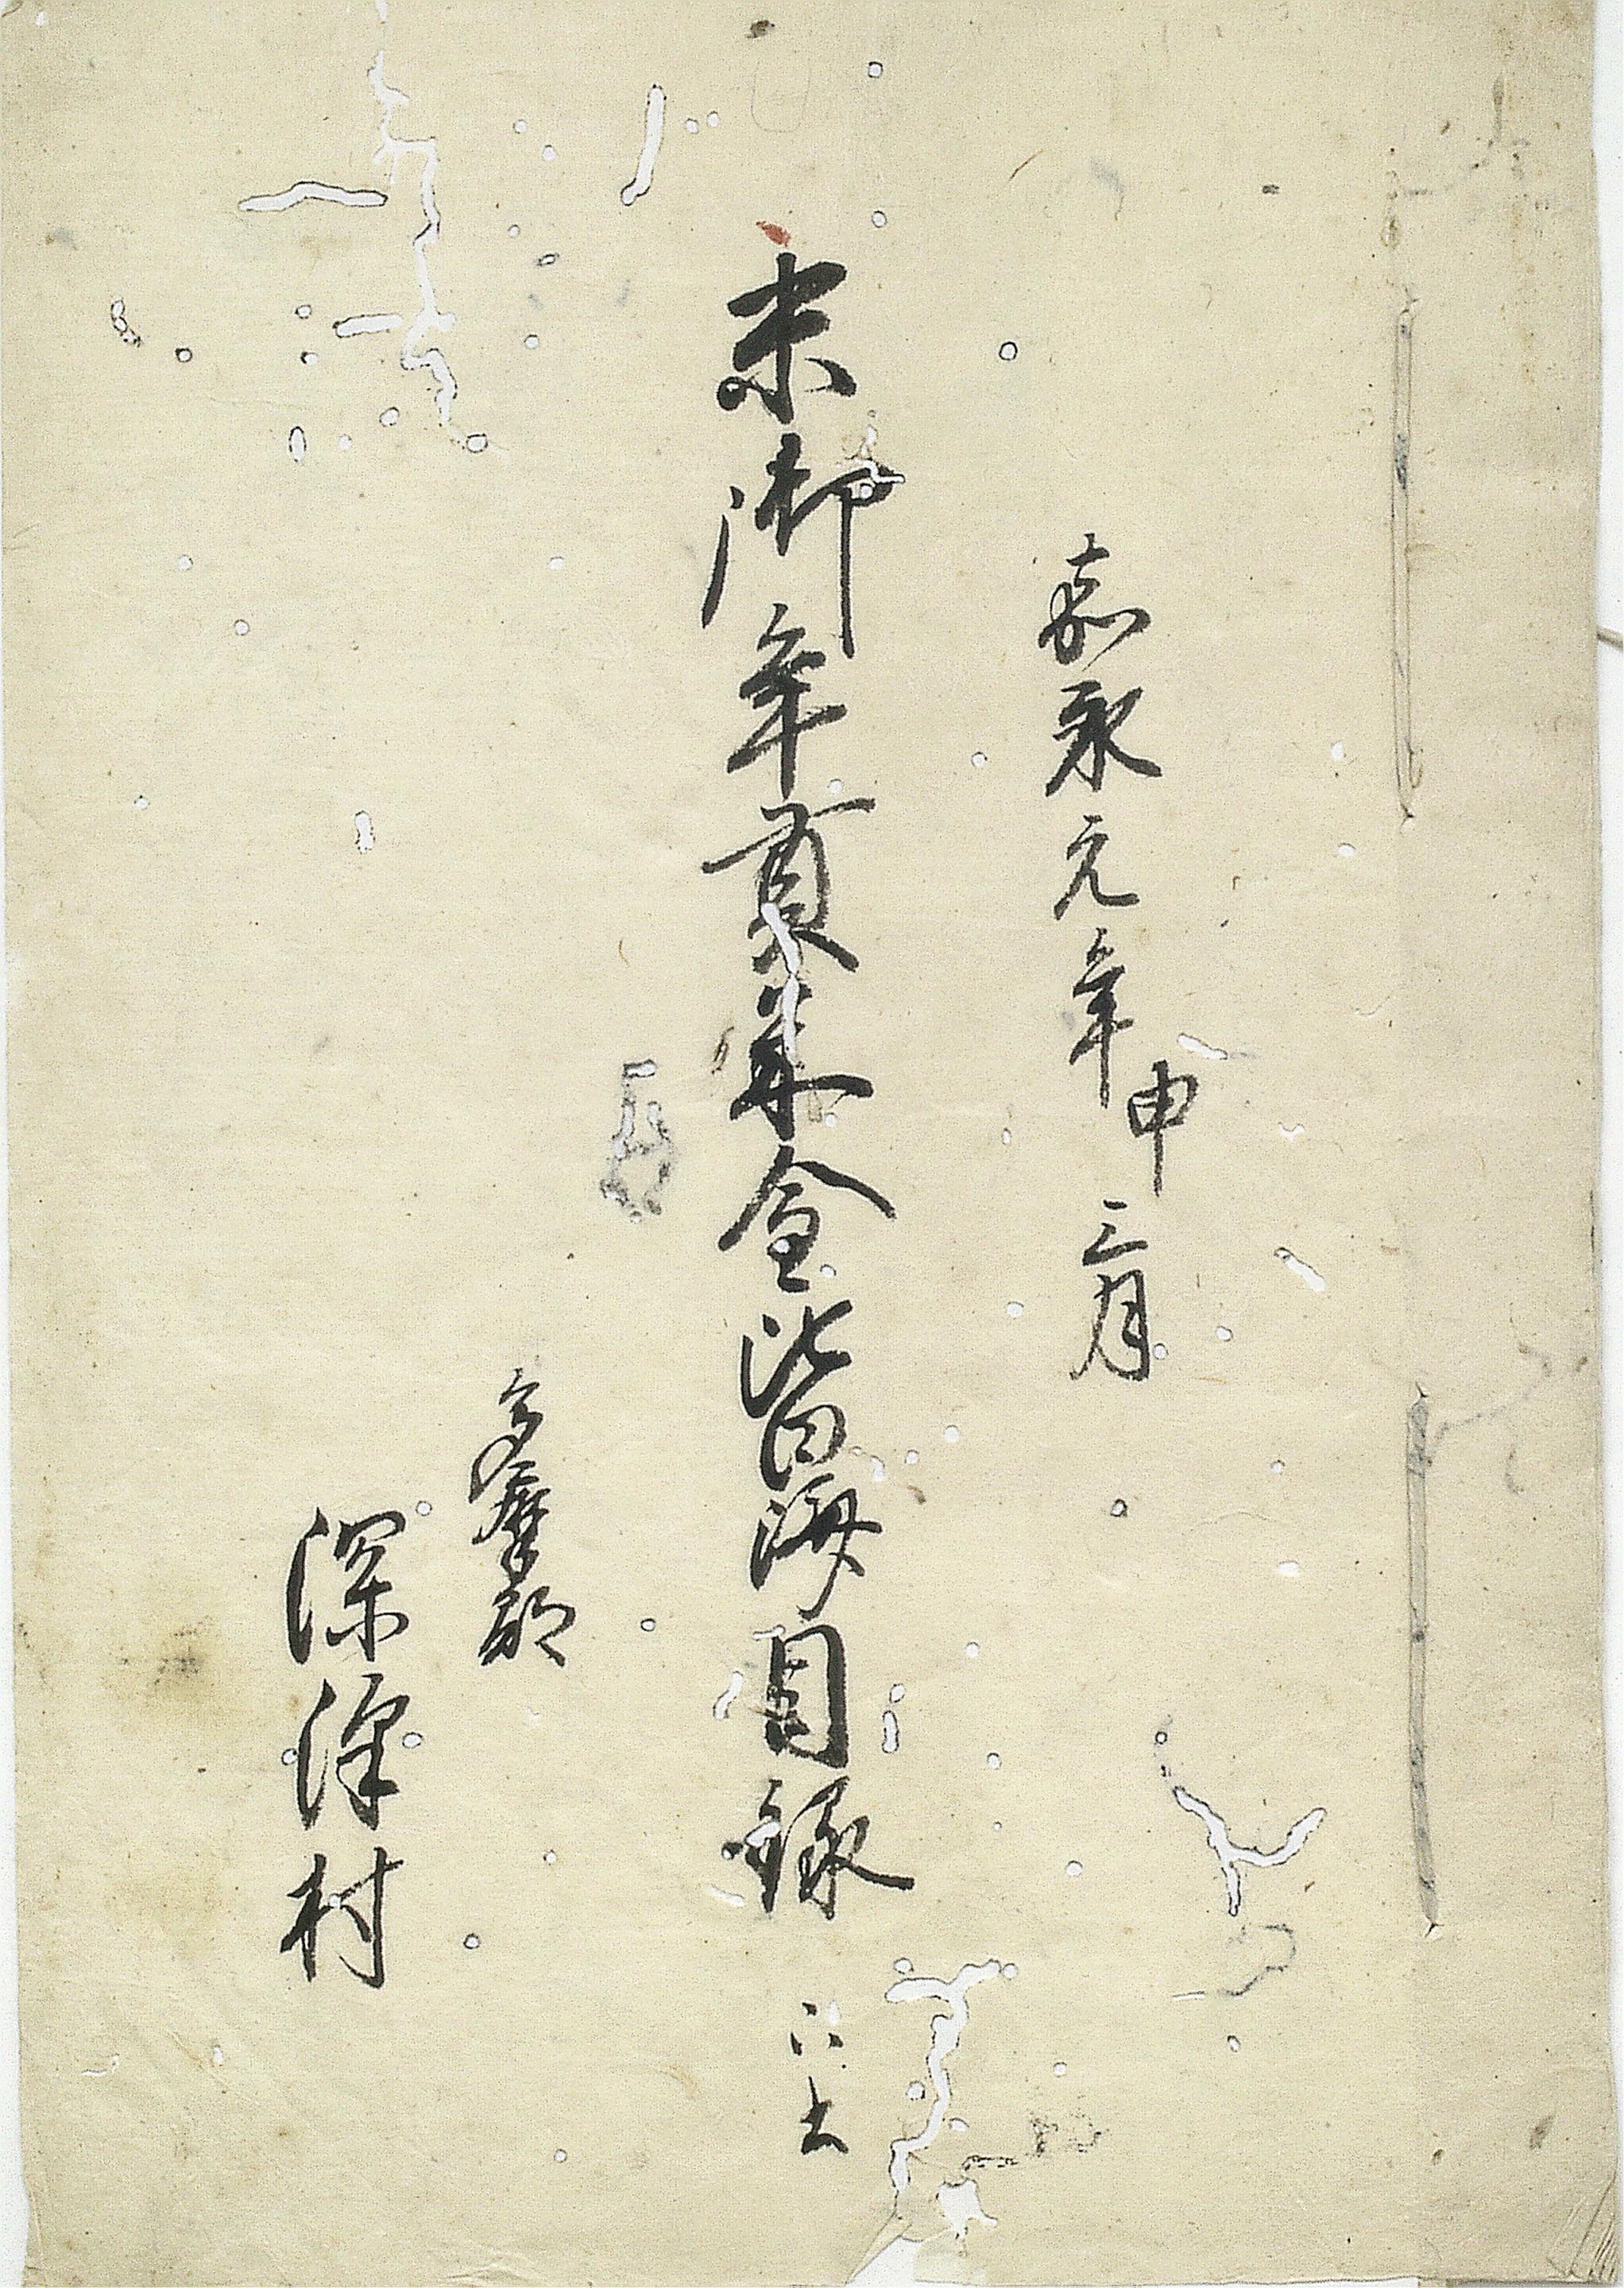 嘉永元年申三月
未御年貢米金皆済目録
多摩郡
深澤村